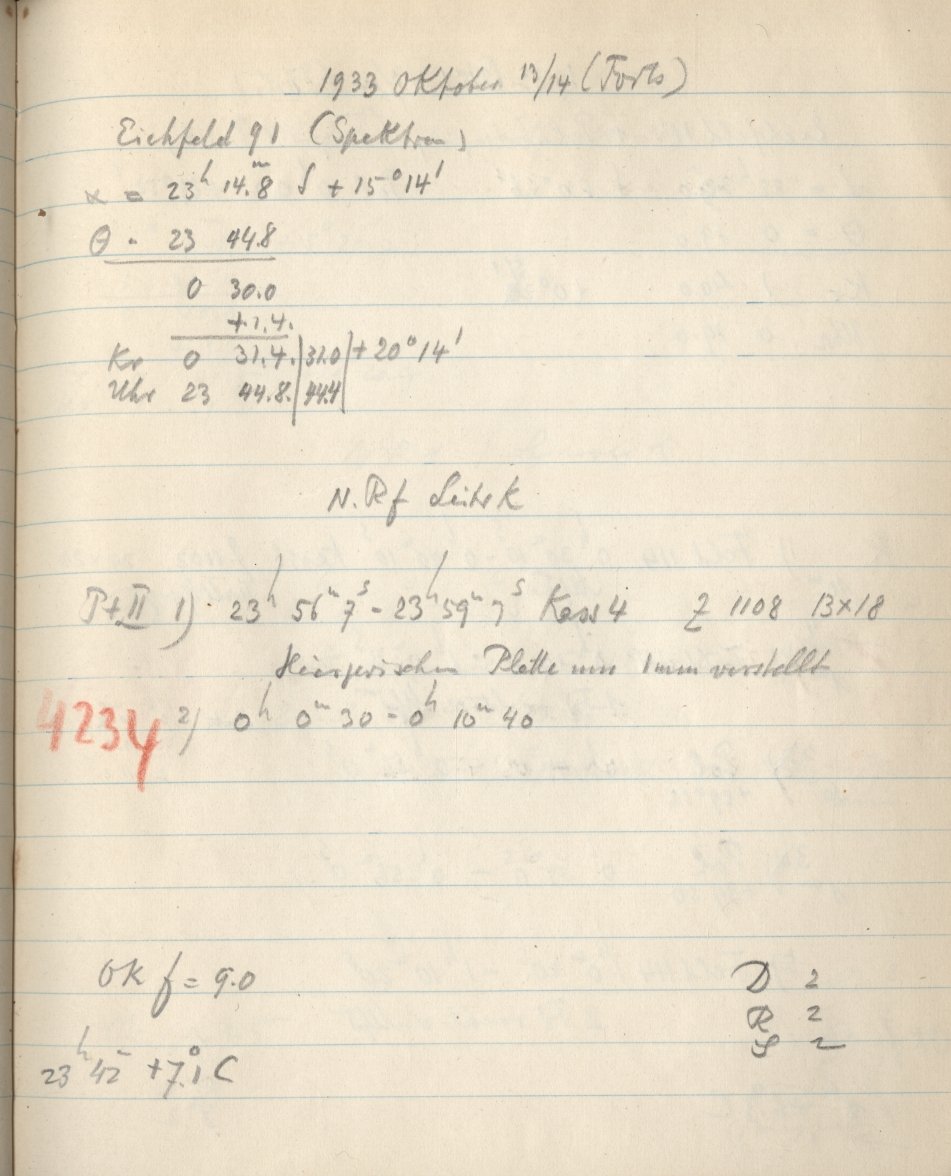 1933 Oktober 13/14 (Forts)
Eichfeld 91 (Spektrum)
α = 23h 14.m8 δ + 15°14'
θ = 23 44.8
0 30.0
+1.4.
Kr 0 31.4. | 31.0 | + 20°14'
Uhr 23 44.8. | 44.4 |
N. Rf
P+II 1) 23h 56m 7s - 23h 59m 7s Kass 4 Z 1108 13x18
Hierzwischen Platte um 1mm verstellt
4234 2) 0h 0m 30 - 0h 10m 40
OK f = 9.0
D 2
R 2
S 2
23h 42m +7.°1 C